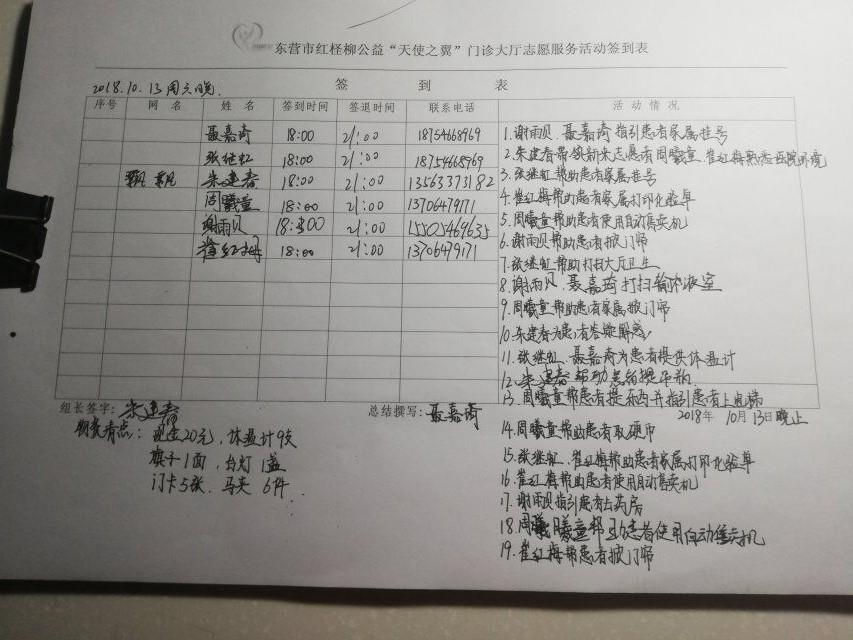 东营市红柽柳公益“天使之翼”门诊大厅志愿服务活动签到表
2018.10.13周六晚.
签 到 表
序号 网 名 姓 名 签到时间 签退时间 联系电话 活 动 情 况
聂嘉琦 18:00 21:00 18754668969
张继虹 18:00 21:00 18754668969
朱建春 18:00 21:00 13563373182
周曦童 18:00 21:00 13706479171
谢雨贝 18:00 21:00 15505469635
崔红梅 18:00 21:00 13706479171
1.谢雨贝、聂嘉琦指引患者家属挂号
2.朱建春带领新来志愿者周曦童、崔红梅熟悉医院环境
3.张继虹帮助患者家属挂号
4.崔红梅帮助患者家属打印化验单
5.周曦童帮助患者使用自动售卖机
6.谢雨贝帮助患者掀门帘
7.张继虹帮助打扫大厅卫生
8.谢雨贝、聂嘉琦打扫输液室
9.周曦童帮助患者家属掀门帘
10.朱建春为患者答疑解惑
11.张继虹、聂嘉琦为患者提供体温计
12.朱建春帮助患者提吊瓶
13.周曦童帮患者提东西并指引患者上电梯
组长签字:朱建春
总结撰写:聂嘉琦
2018年 10月 13日晚止
物资清点:现金20元,体温计9支
旗子1面,台灯1盏
门卡5张、马夹 6件.
14.周曦童帮助患者取硬币
15.张继虹、崔红梅帮助患者家属打印化验单
16.崔红梅帮助患者使用自动售卖机
17.谢雨贝指引患者去药房
18.周曦童帮助患者使用自动售卖机
19.崔红梅帮患者掀门帘